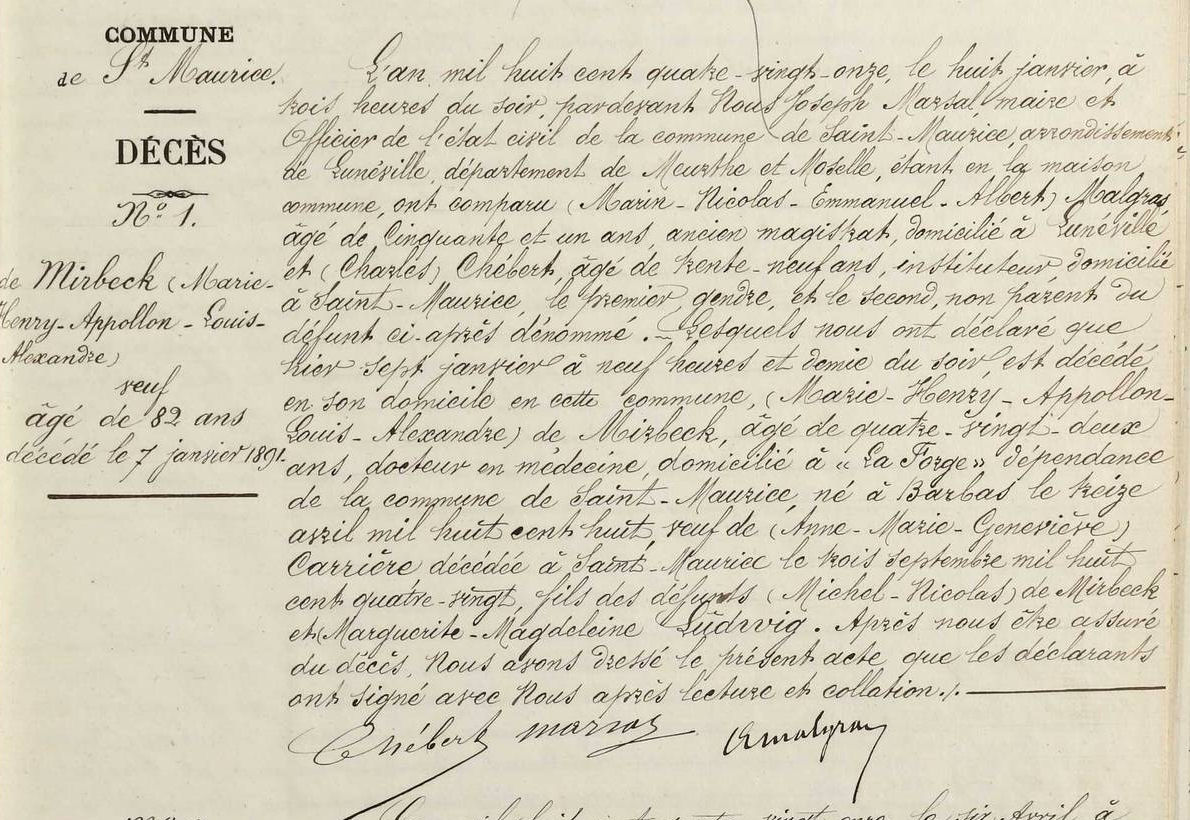 COMMUNE
de St Maurice.
DÉCÈS
No 1.
de Mirbeck (Marie-
Henry-Appollon-Louis-
Alexandre)
veuf
âgé de 82 ans
décédé le 7 janvier 1891.
L'an mil huit cent quatre-vingt-onze, le huit janvier, à
trois heures du soir, pardevant Nous Joseph Marsal maire et
Officier de l'état civil de la commune de Saint-Maurice, arrondissement
de Lunéville, département de Meurthe et Moselle, étant en la maison
commune, ont comparu (Marin-Nicolas-Emmanuel-Albert) Malgras
âgé de Cinquante et un ans, ancien magistrat, domicilié à Lunéville
et (Charles) Chébert, âgé de trente-neuf ans, instituteur domicilié
à Saint-Maurice, le premier, gendre, et le second, non parent du
défunt ci-après dénommé. - Lesquels nous ont déclaré que
hier sept janvier à neuf heures et demie du soir, est décédé
en son domicile en cette commune, (Marie-Henry-Appollon-
Louis-Alexandre) de Mirbeck, âgé de quatre-vingt-deux
ans, docteur en médecine domicilié à « La Forge » dépendance
de la commune de Saint-Maurice, né à Barbas le treize
avril mil huit cent huit, veuf de (Anne-Marie-Geneviève)
Carrière décédée à Saint-Maurice le trois septembre mil huit
cent quatre-vingt, fils des défunts (Michel-Nicolas) de Mirbeck
et (Marguerite-Magdeleine Ludwig. Après nous être assuré
du décès, Nous avons dressé le présent acte que les déclarants
ont signé avec Nous après lecture et collation./.
Chébert Marsal Amalgras